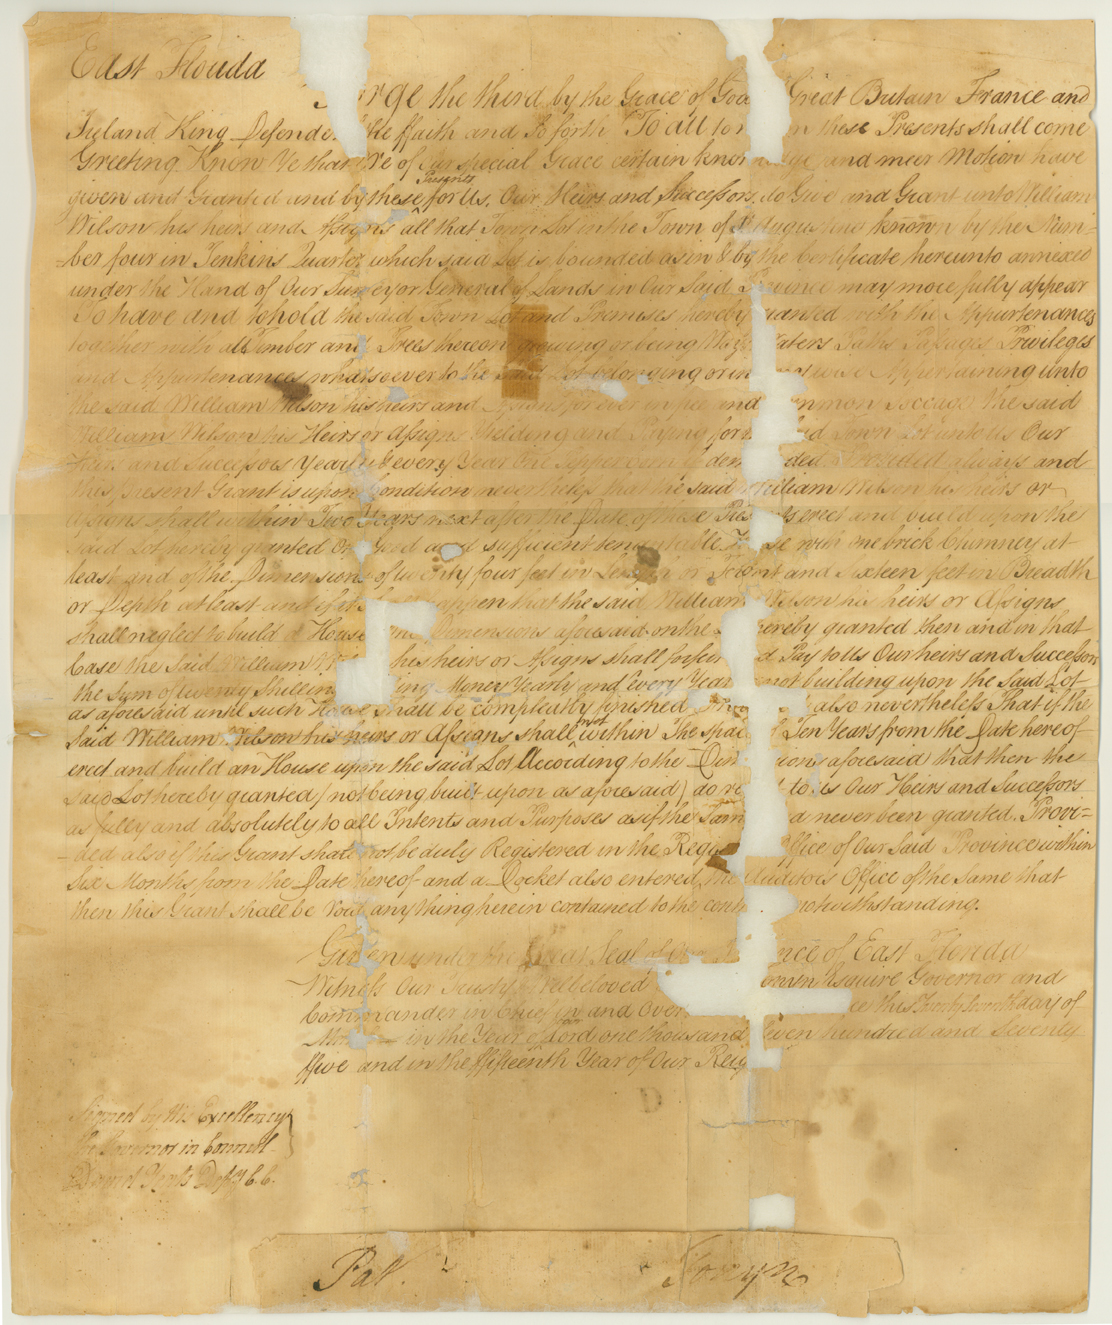 East Florida
rge the third by the Grace of God Great Britain France and
Ireland King Defender the ffaith and So forth To all to whom these Presents shall come
Greeting. Know Ye that We of Our special Grace certain knowledge and meer Motion have
Presents
given and Granted and by these for Us, Our Heirs and Successors, do Give and Grant unto William
Wilson his heirs and Assigns all that Town Lot in the Town of St Augustine known by the Num-
-ber four in Jenkins Quarter which said Lot is bounded as in & by the Certificate hereunto annexed
under the Hand of Our Surveyor General of Lands in Our Said Province may more fully appear
To have and to hold the said Town Lot and Premises hereby granted with the Appurtenances
together with all Timber and Trees thereon growing or being Ways Waters Paths Passages Privileges
and Appurtenances whatsoever to the said Lot belonging or in wise Appertaining unto
the said William Wilson his heirs and Assigns for ever in free and Common Soccage the said
William Wilson his Heirs or Assigns Yielding and Paying for the said Town Lot unto Us Our
Heirs and Successors Yearly & every Year One Pepper Corn if demanded Provided always and
this present Grant is upon Condition nevertheless that the said William Wilson his heirs or
Assigns shall within Two Years next after the Date of these Presents erect and build upon the
said Lot hereby granted One Good and sufficient tenantable House with one brick Chimney at
least and of the Dimensions of twenty four feet in Length or Front and Sixteen feet in Breadth
or Depth at least and if it shall happen that the said William Wilson his heirs or Assigns
shall neglect to build a House Dimensions aforesaid on the hereby granted then and in that
Case the Said William his heirs or Assigns shall forfeit and Pay to Us Our heirs and Successors
the Sum of twenty Shillings ling Money Yearly and every Year not building upon the Said Lot
as aforesaid until such House shall be compleatly finished also nevertheless That if the
not
Said William Wilson his heirs or Assigns shall within The space of Ten Years from the Date hereof
erect and build an House upon the said Lot According to the Dimensions aforesaid that then the
said Lot hereby granted (not being built upon as aforesaid) do revert to Us Our Heirs and Successors
as fully and absolutely to all Intents and Purposes as if the Same had never been granted. Provi-
-ded also if this Grant shall not be duly Registered in the Register Office of Our Said Province within
Six Months from the Date hereof and a Docket also entered the Auditors Office of the Same that
then this Grant shall be Void any thing herein contained to the contrary notwithstanding.
Given under the Great Seal of Our Province of East Florida
Witness Our Trusty & Wellbeloved Esquire Governor and
Commander in Chief in and Over this day of
our
in the Year of Lord one thousand Seven hundred and Seventy
ffive and in the ffifteenth Year of Our Reign
Signed by His Excellency
the Governor in Council
David Yeats Depy C. C.
Pat.
Tonyn